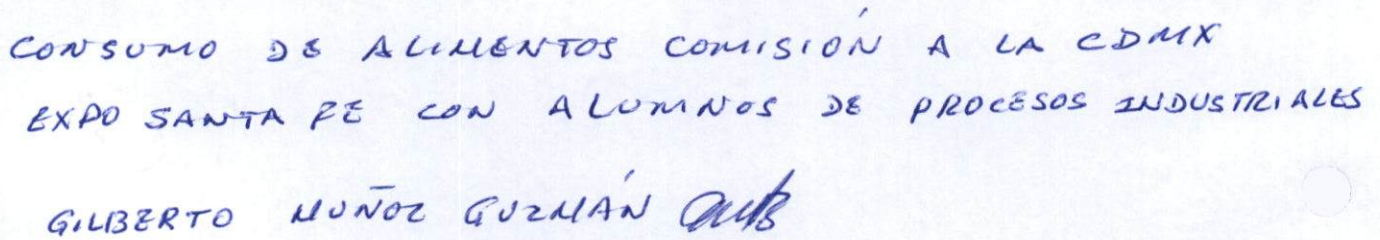 CONSUMO DE ALIMENTOS COMISIÓN A LA CDMX
EXPO SANTA FE CON ALUMNOS DE PROCESOS INDUSTRIALES
GILBERTO MUÑOZ GUZMÁN